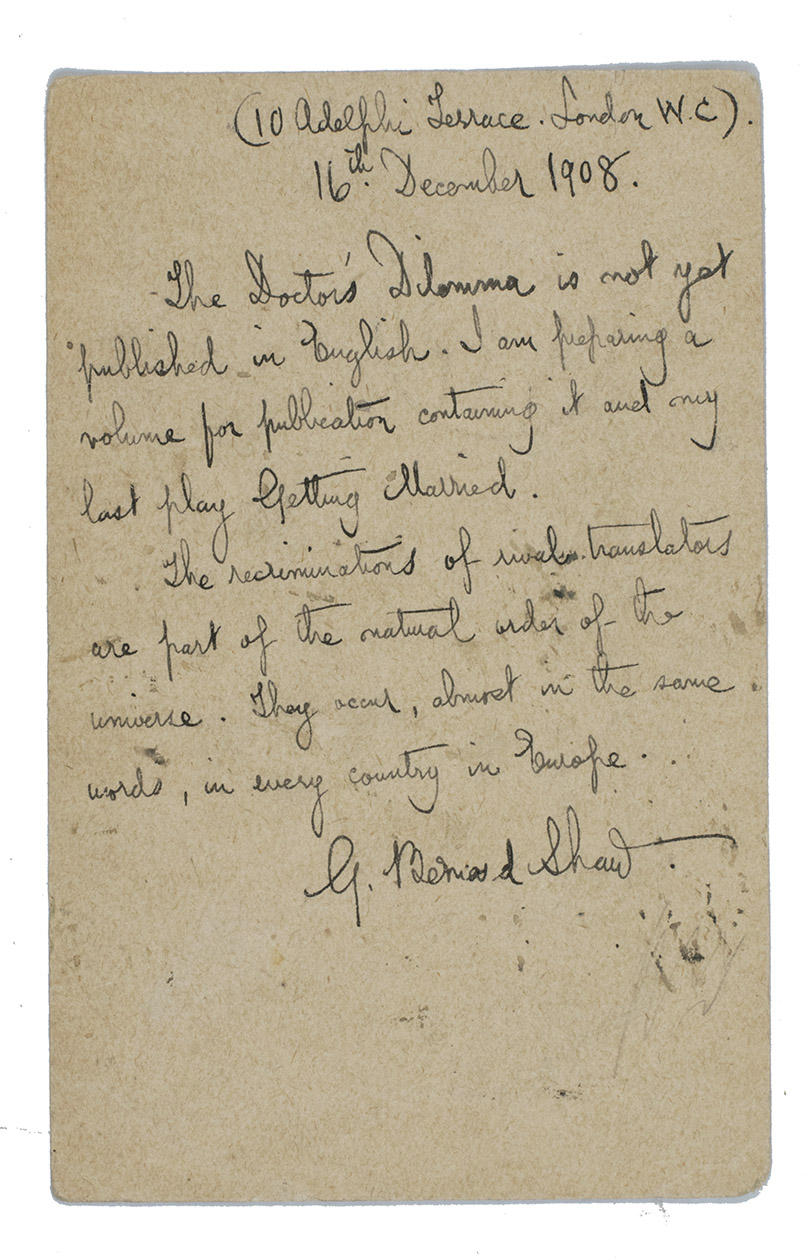 (10 Adelphi Terrace. London W.C).
16th. December 1908.
The Doctor's Dilemma is not yet
published in English. I am preparing a
volume for publication containing it and my
last play Getting Married.
The recriminations of rival translators
are part of the natural order of the
universe. They occur, almost in the same
words, in every country in Europe.
G. Bernard Shaw.